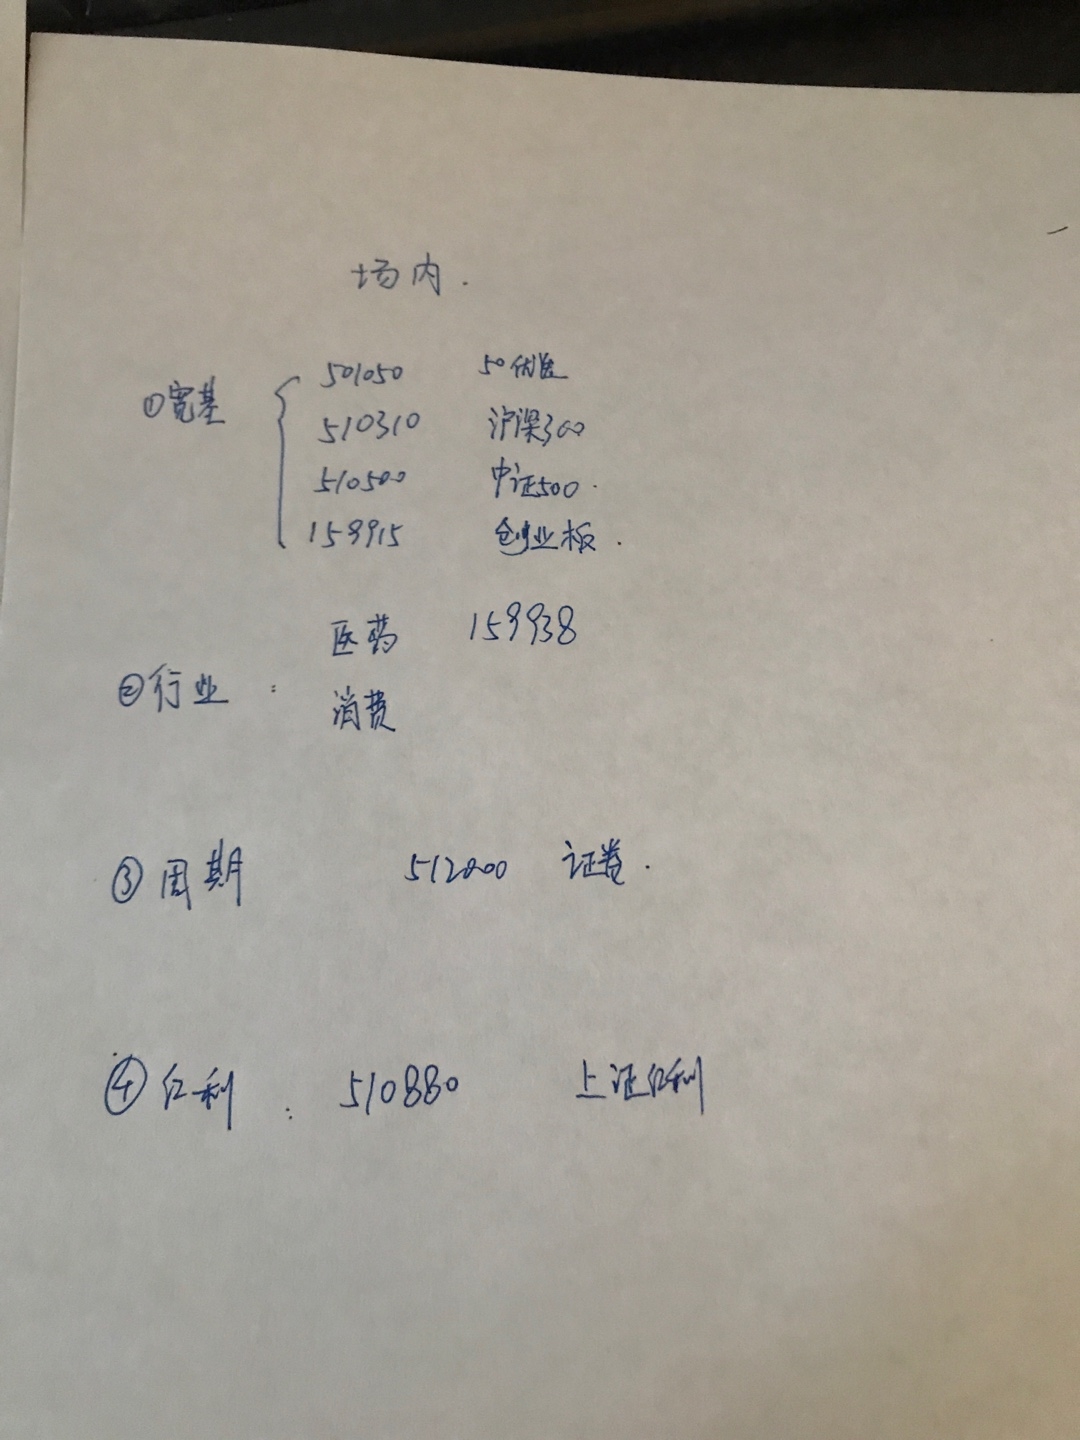 场内.
①宽基
501050 50优选
510310 沪深300
510500 中证500.
159915 创业板.
②行业:
医药 159938
消费
③周期 512000 证卷.
④红利: 510880 上证红利